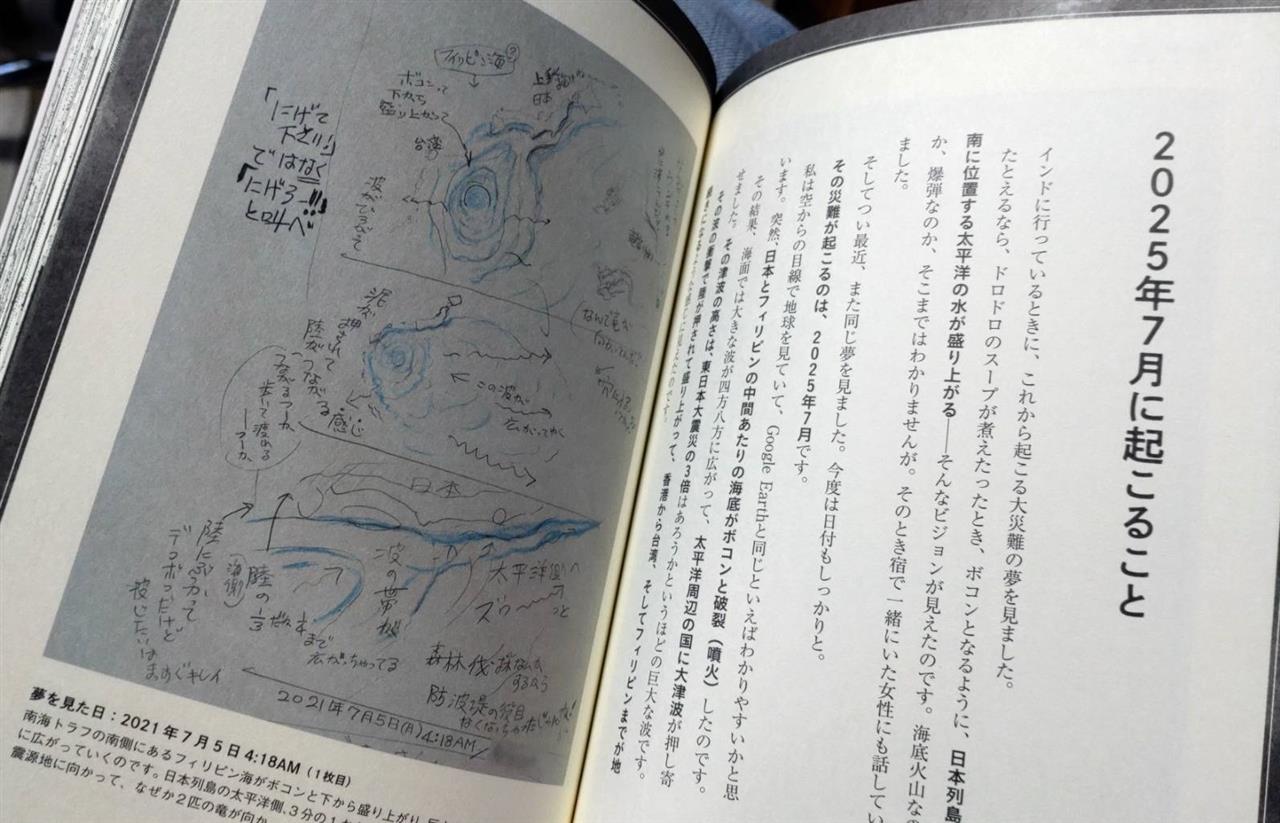 2025年7月に起こること
インドに行っているときに、これから起こる大災難の夢を見ました。
たとえるなら、ドロドロのスープが煮えたったとき、ボコンとなるように、日本列島
南に位置する太平洋の水が盛り上がる――そんなビジョンが見えたのです。海底火山なの
か、爆弾なのか、そこまではわかりませんが。そのとき宿で一緒にいた女性にも話してい
ました。
そしてつい最近、また同じ夢を見ました。今度は日付もしっかりと。
その災難が起こるのは、2025年7月です。
私は空からの目線で地球を見ていて、Google Earthと同じといえばわかりやすいかと思
います。突然、日本とフィリピンの中間あたりの海底がボコンと破裂（噴火）したのです。
その結果、海面では大きな波が四方八方に広がって、太平洋周辺の国に大津波が押し寄
せました。その津波の高さは、東日本大震災の3倍はあろうかというほどの巨大な波です。
その波の衝撃で陸が押されて盛り上がって、香港から台湾、そしてフィリピンまでが地
フィリピン海
ボコンって
下から
盛り上がって
日本
台湾
「にげて
下さい」
ではなく
「にげろー!!!」
と叫べ
波がひろがって
泥が
押されて
陸が
つながる
感じ
歩いて渡れる
この波が
広がってゆく
日本
陸にぶつかって
（海側）
デコボコだけど
波じたいは
まっすぐキレイ
陸の
1/3
まで
広がっちゃってる
波の帯
太平洋側へ
ズゥーっと
森林伐採なんか
するから
防波堤の役目
なくなっちゃった
2021年7月5日(月)4:18AM
夢を見た日：2021年7月5日 4:18AM（1枚目）
南海トラフの南側にあるフィリピン海がボコンと下から盛り上がり、
に広がっていくのです。日本列島の太平洋側、3分の1
震源地に向かって、なぜか2匹の竜が向か